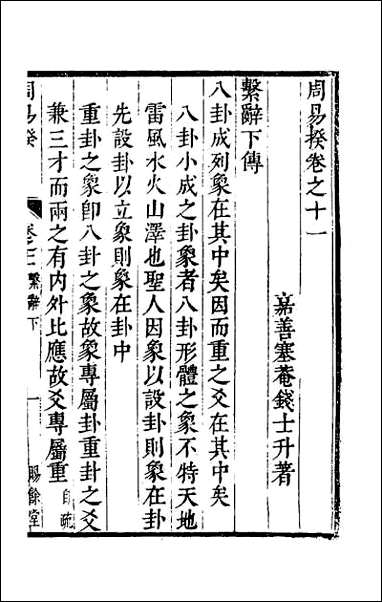 周易揆卷之十一
嘉善塞菴錢士升著
繫辭下傳
八卦成列象在其中矣因而重之爻在其中矣
八卦小成之卦象者八卦形體之象不特天地
雷風水火山澤也聖人因象以設卦則象在卦
先設卦以立象則象在卦中
重卦之象卽八卦之象故象專屬卦重卦之爻
兼三才而兩之有内外比應故爻專屬重
自疏
周易揆
繫辭下
一
賜餘堂